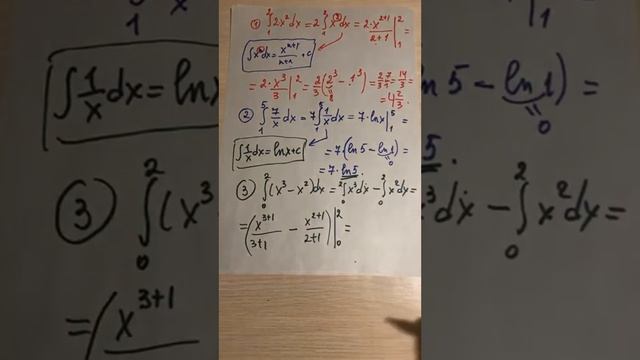 1 ∫₁² 2x² dx = 2 ∫₁² x² dx = 2 · x²⁺¹/2+1 |₁² =
∫xⁿdx = xⁿ⁺¹/n+1 + c
= 2 · x³/3 |₁² = 2/3 (2³ - 1³) = 2/3 · 7/1 = 14/3 =
8
= 4 2/3.
2 ∫₁⁵ 7/x dx = 7 ∫₁⁵ 1/x dx = 7 · lnx |₁⁵ =
∫ 1/x dx = lnx + c
= 7 · (ln5 - ln1) =
0
= 7 · ln5.
3 ∫₀² (x³ - x²) dx = ∫₀² x³ dx - ∫₀² x² dx =
= (x³⁺¹/3+1 - x²⁺¹/2+1) |₀² =
∫ 1/x dx = lnx
3 ∫₀² (x³
= ( x³⁺¹
n5 - ln1) =
0
5.
- ∫₀² x² dx =